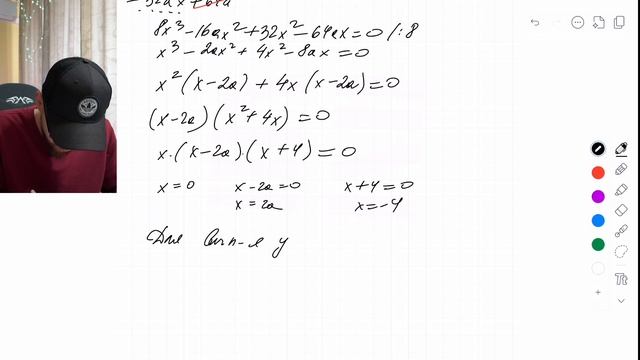 8x³-16ax²+32x²-64ax=0 /:8
x³-2ax²+4x²-8ax=0
x²(x-2a)+4x(x-2a)=0
(x-2a)(x²+4x)=0
x·(x-2a)·(x+4)=0
x=0 x-2a=0 x+4=0
x=2a x=-4
у
Tt